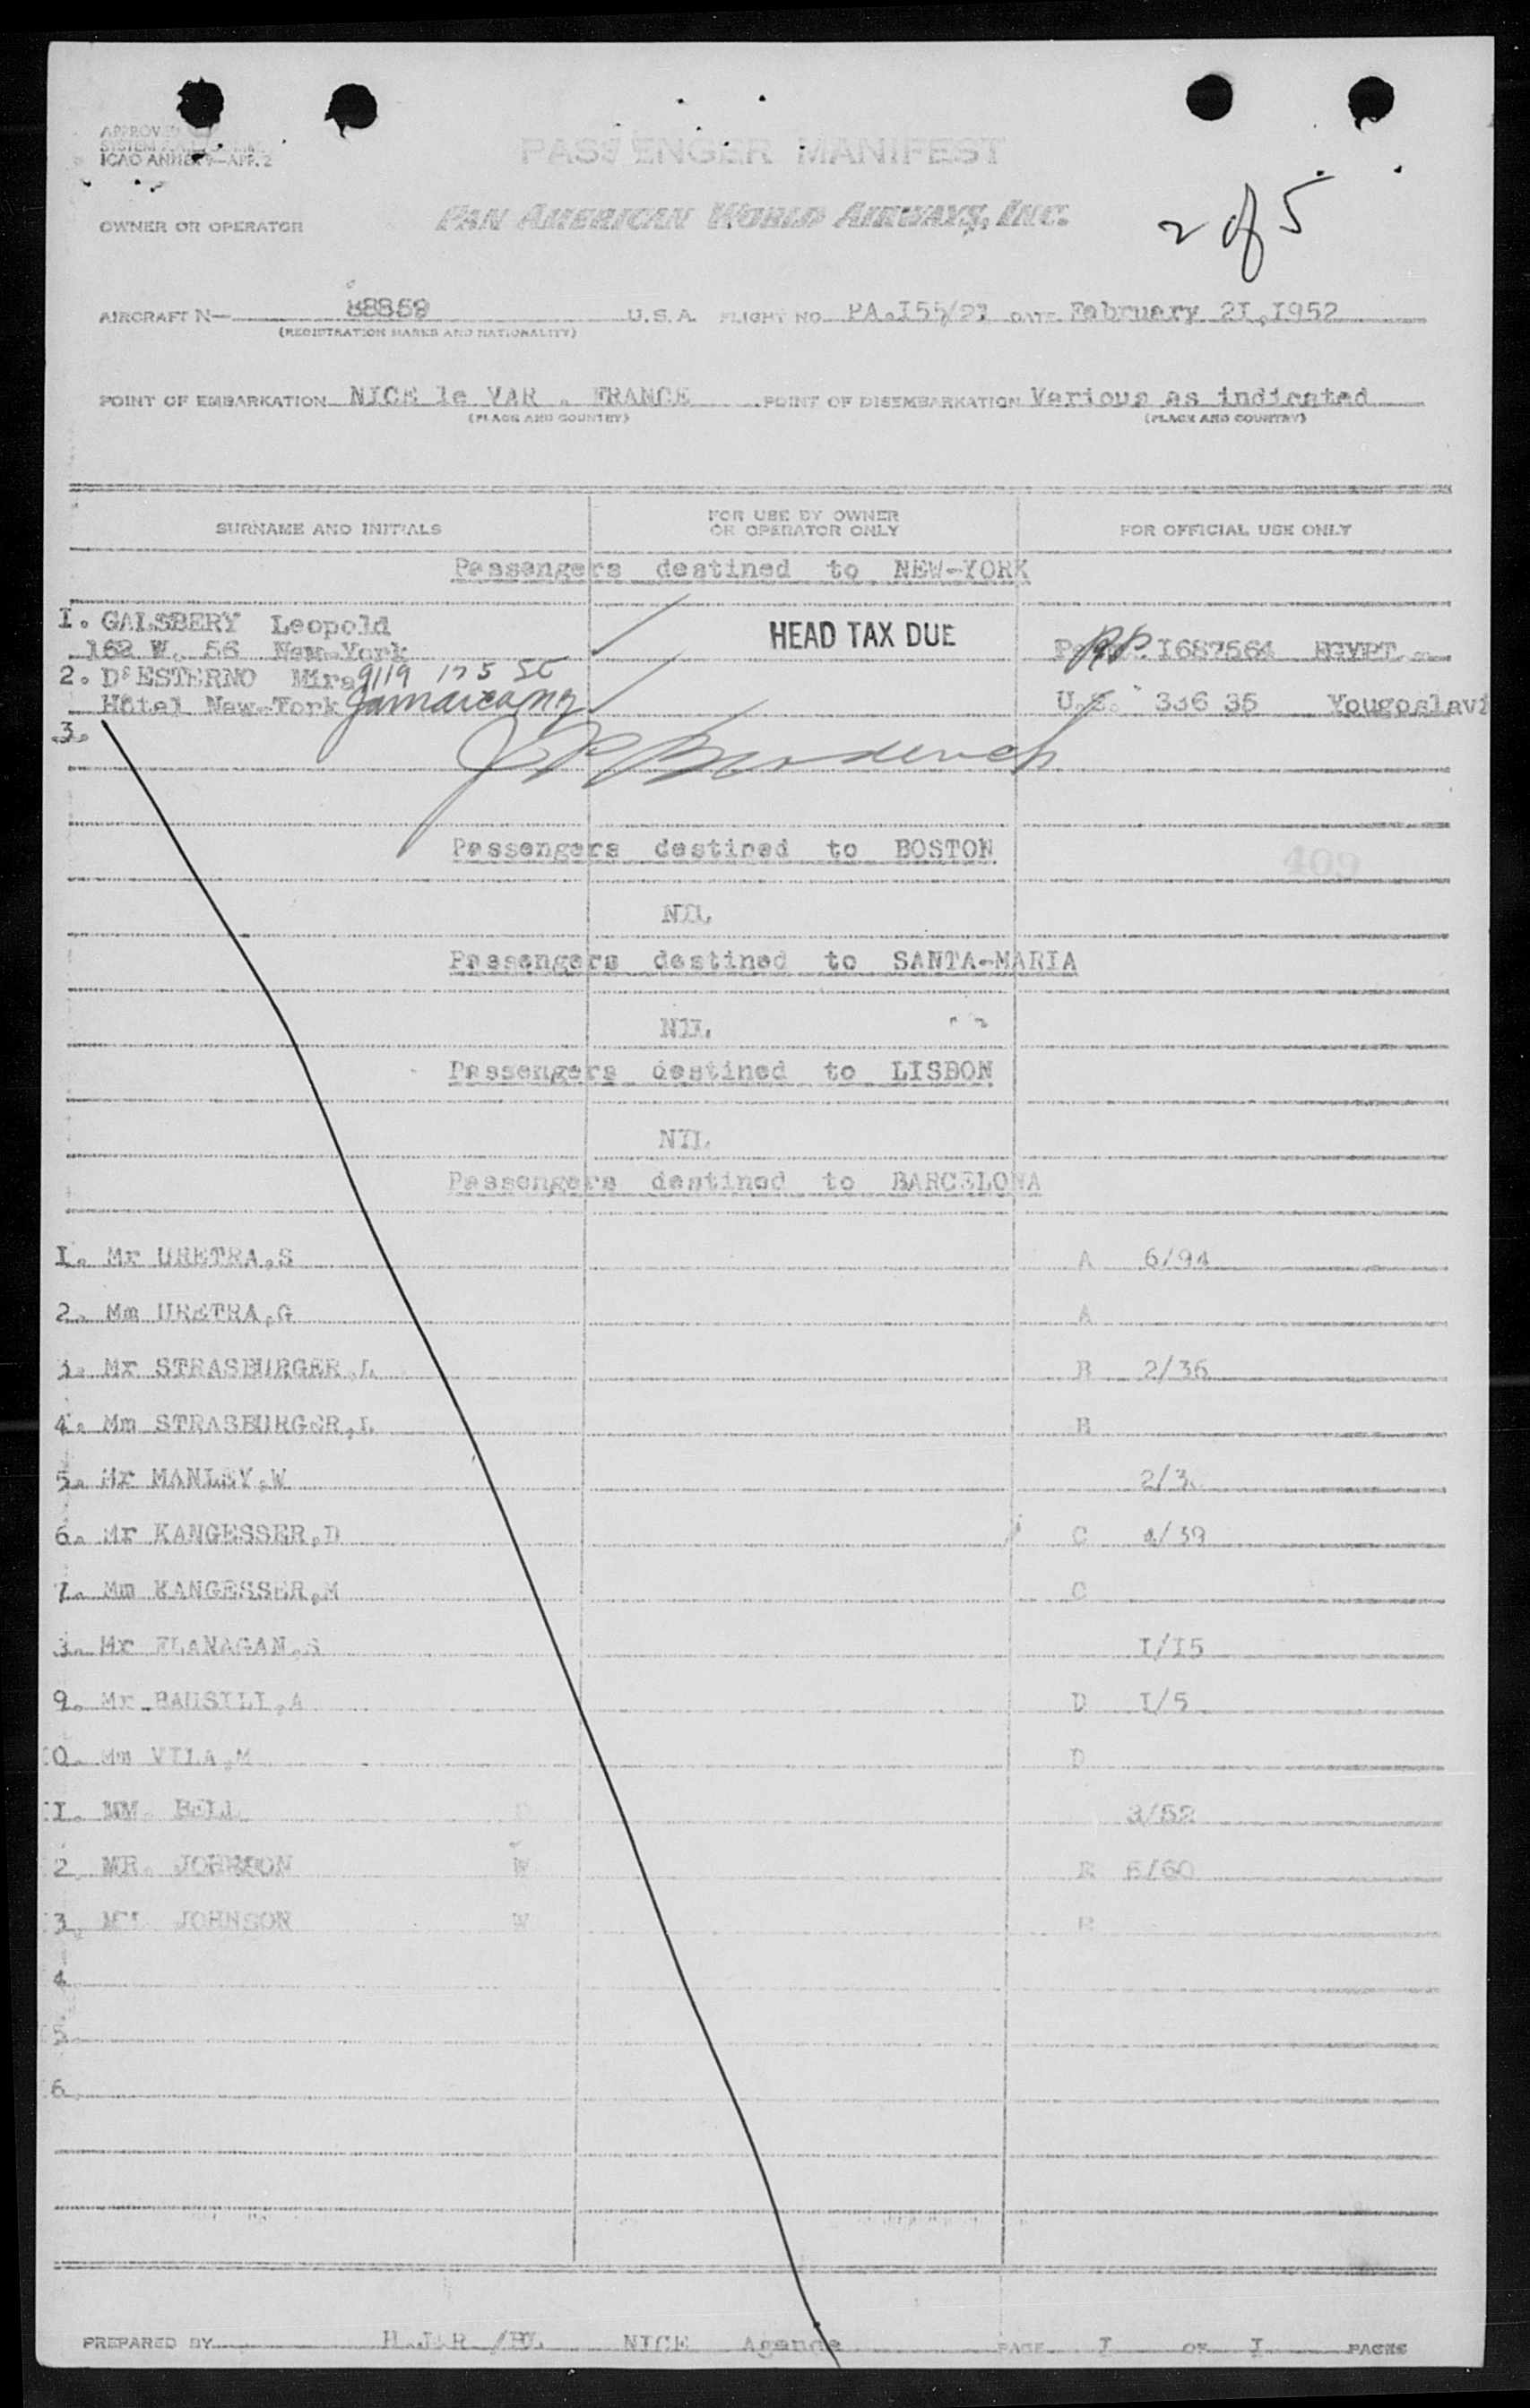 ICAO ANNEX 9—APP. 2
PASSENGER MANIFEST
OWNER OR OPERATOR
PAN AMERICAN WORLD AIRWAYS, INC.
2 of 5
AIRCRAFT N— 88859 U.S.A. FLIGHT NO. PA.I55/21 DATE February 2I,I952
(REGISTRATION MARKS AND NATIONALITY)
POINT OF EMBARKATION NICE le VAR . FRANCE POINT OF DISEMBARKATION Various as indicated
(PLACE AND COUNTRY) (PLACE AND COUNTRY)
SURNAME AND INITIALS
FOR USE BY OWNER
OR OPERATOR ONLY
FOR OFFICIAL USE ONLY
Passengers destined to NEW-YORK
I. GALSBERY Leopold
HEAD TAX DUE
162 W. 56 New-York
PP I687564 EGYPT
2. D'ESTERNO Mira 9119 175 St
Hôtel New-York Jamaica NY
U.S. 336 35 Yougoslavi
3.
Passengers destined to BOSTON
409
NIL
Passengers destined to SANTA-MARIA
NIL
Passengers destined to LISBON
NIL
Passengers destined to BARCELONA
I. Mr URETRA,S A 6/94
2. Mm URETRA,G A
3. Mr STRASBURGER,L B 2/36
4. Mm STRASBURGER,L B
5. Mr MANLEY,W 2/3
6. Mr KANGESSER,D C 4/39
7. Mm KANGESSER,M C
8. Mr FLANAGAN,S I/I5
9. Mr BAUSILI,A D I/5
I0. Mm VILA,M D
I1. MM. BELL 3/52
2. MR. JOHNSON W E 6/60
3. JOHNSON W E
4
5
6
PREPARED BY H.J.R /BL NICE Agence PAGE I OF I PAGES